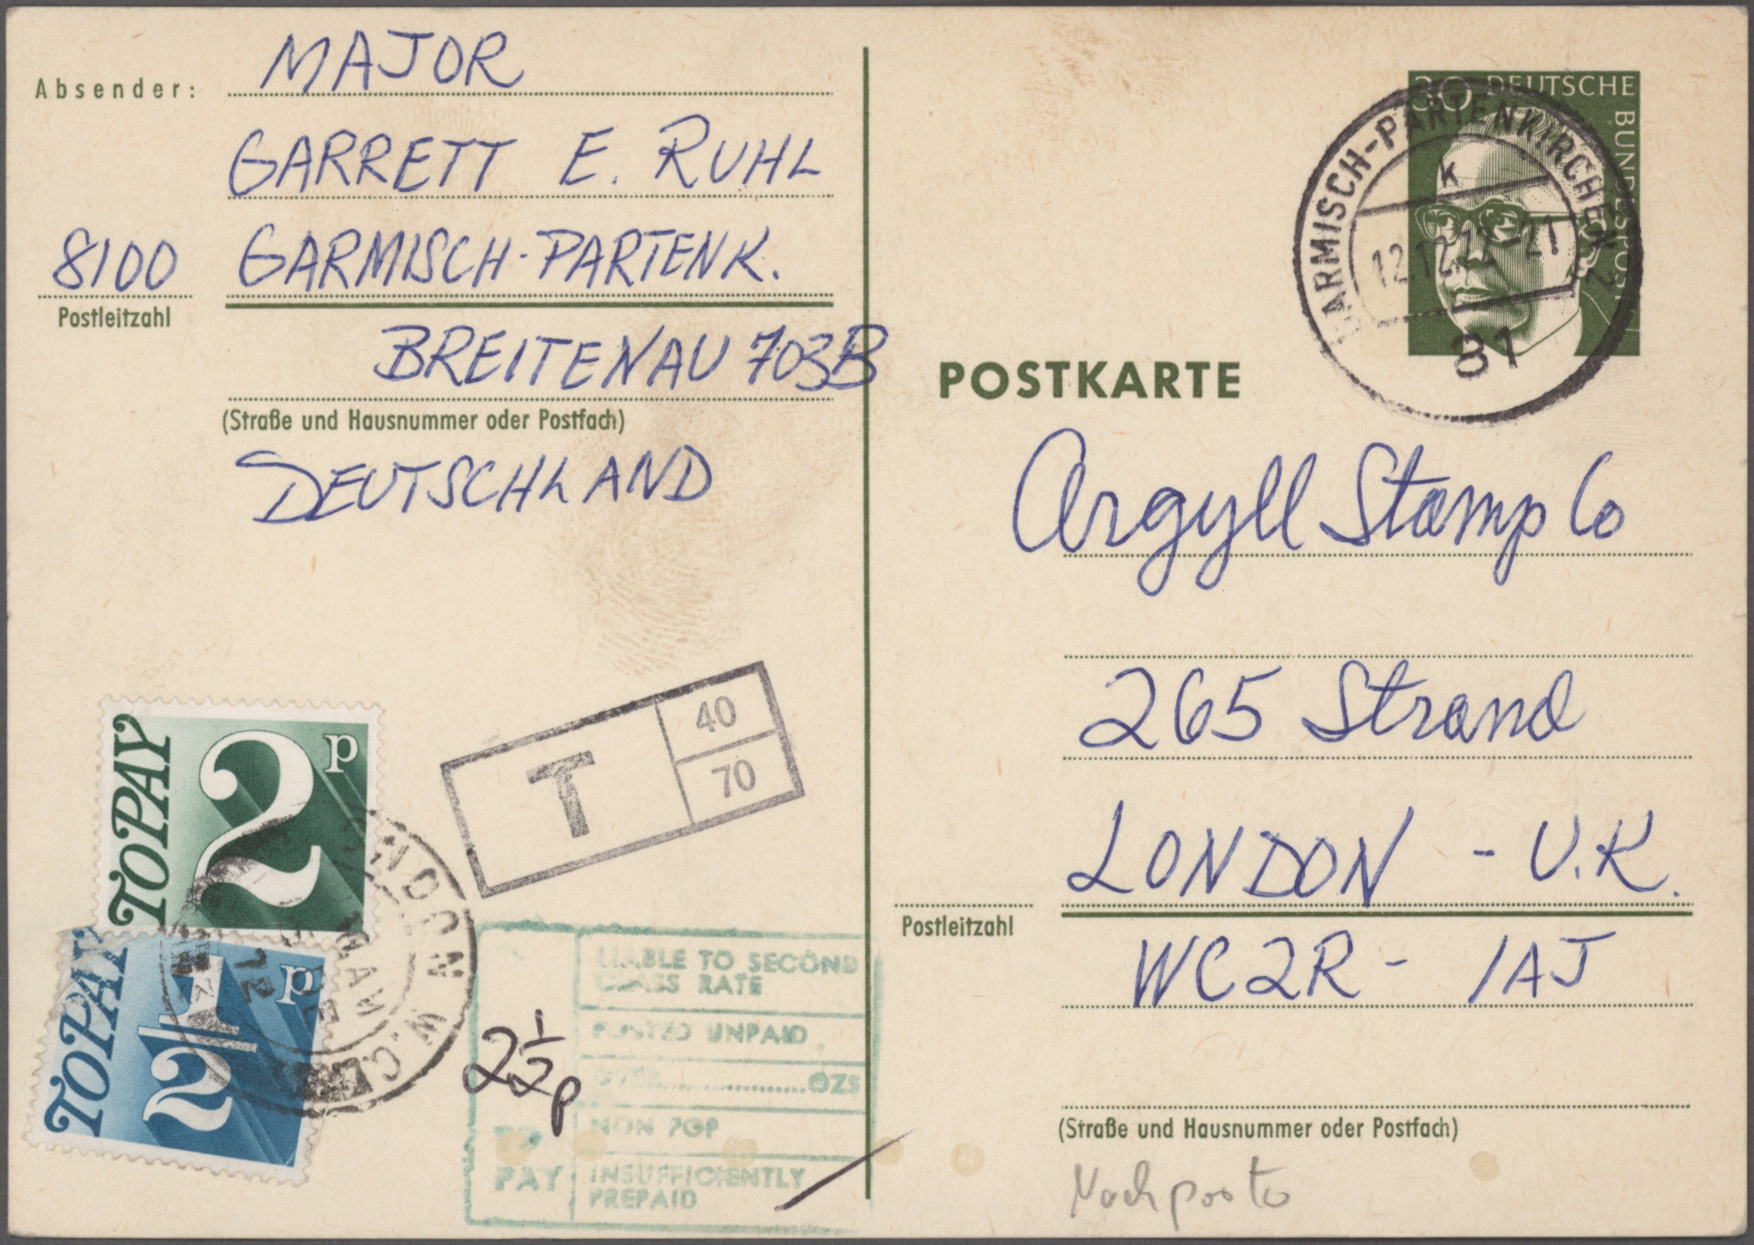 Absender:
MAJOR
GARRETT E. RUHL
8100 GARMISCH-PARTENK.
Postleitzahl
BREITENAU 703B
(Straße und Hausnummer oder Postfach)
DEUTSCHLAND
30 DEUTSCHE
BUNDESPOST
GARMISCH-PARTENKIRCHEN 2
k
81
POSTKARTE
Argyll Stamp Co
265 Strand
LONDON - U.K.
Postleitzahl
WC2R - 1AJ
(Straße und Hausnummer oder Postfach)
Nachporto
T
40
70
TO PAY
2p
TO PAY
1/2p
LONDON W.C.
2 1/2p
LIABLE TO SECOND
CLASS RATE
POSTED UNPAID
OVER............OZS
NON PGP
TO
PAY
INSUFFICIENTLY
PREPAID